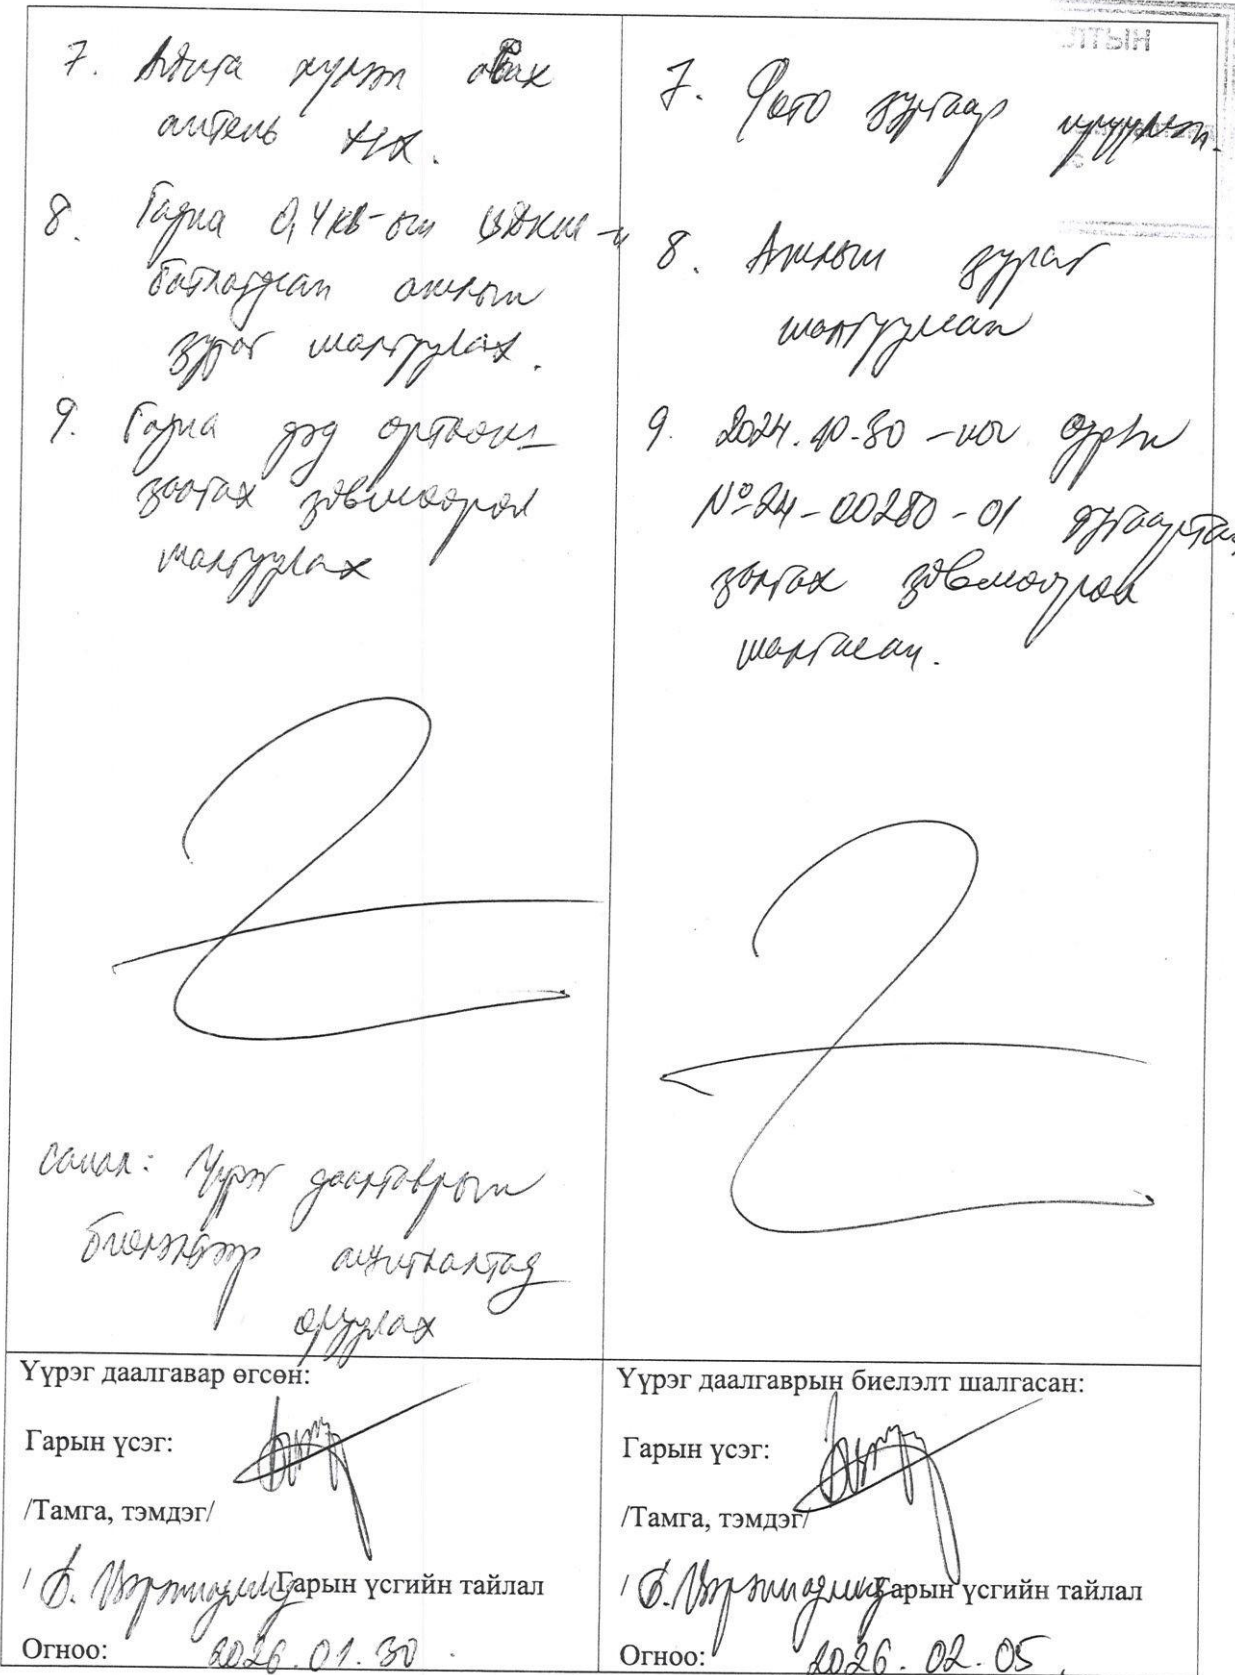 7. хүлээн авах
8. Гадна 0,4кВ-ын
батлагдсан ажлын
зураг шалгуулах.
9. Гадна дэд
зөвшөөрөл
шалгуулах
Санал: Үүрэг даалгаврын
биелэлтээр ашиглалтад
оруулах
7. Фото зургаар ирүүлсэн.
8. Ажлын зураг
шалгуулсан
9. 2024.10.30-ны өдрийн
№24-00280-01 дугаартай
залгах зөвшөөрөл
шалгасан.
Үүрэг даалгавар өгсөн:
Гарын үсэг:
/Тамга, тэмдэг/
/ Гарын үсгийн тайлал
Огноо: 2026.01.30.
Үүрэг даалгаврын биелэлт шалгасан:
Гарын үсэг:
/Тамга, тэмдэг/
/ Гарын үсгийн тайлал
Огноо: 2026.02.05.